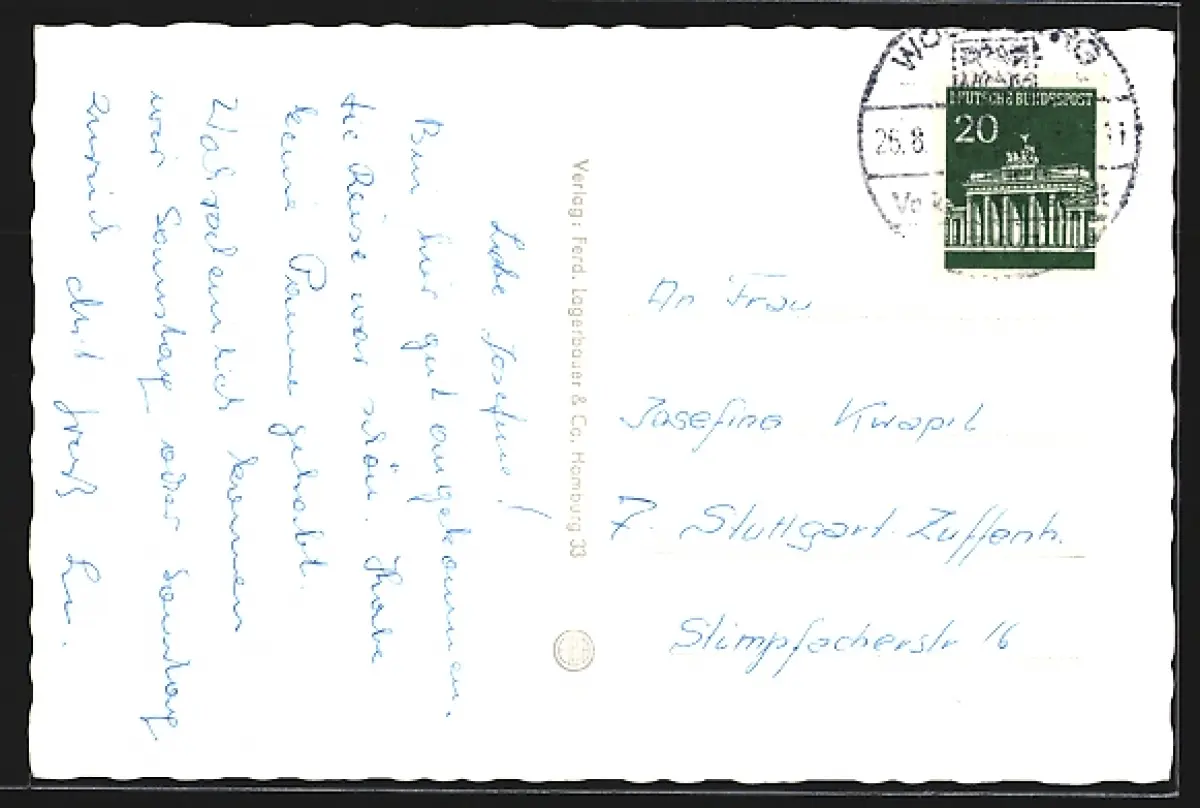 Liebe Josefine!
Bin hier gut angekommen.
die Reise war schön. Habe
keine Panne gehabt.
Wahrscheinlich kommen
wir Samstag oder Sonntag
zurück
Verlag: Ferd. Lagerbauer & Co. Hamburg 33
DEUTSCHE BUNDESPOST
20
26.8.
An Frau
Josefina Kwapil
7. Stuttgart. Zuffenh.
Stimpfacherstr 16